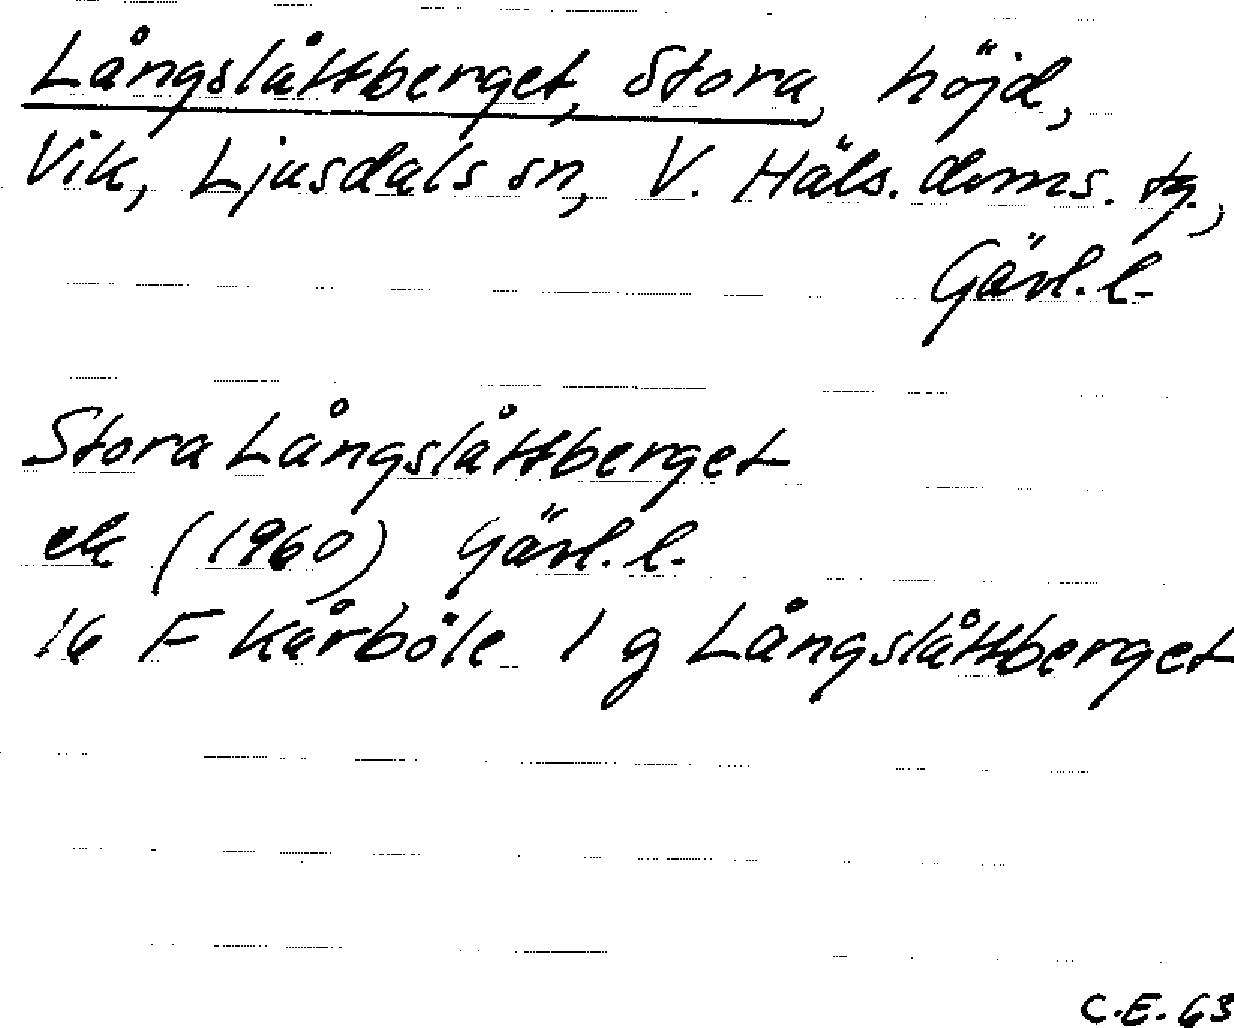 Långslåttberget, Stora, höjd,
Vik, Ljusdals sn, V. Häls. doms. tg.,
Gävl. l.
Stora Långslåttberget
ek (1960) Gävl. l.
16 F Kårböle 1 g Långslåttberget
C.E. 63